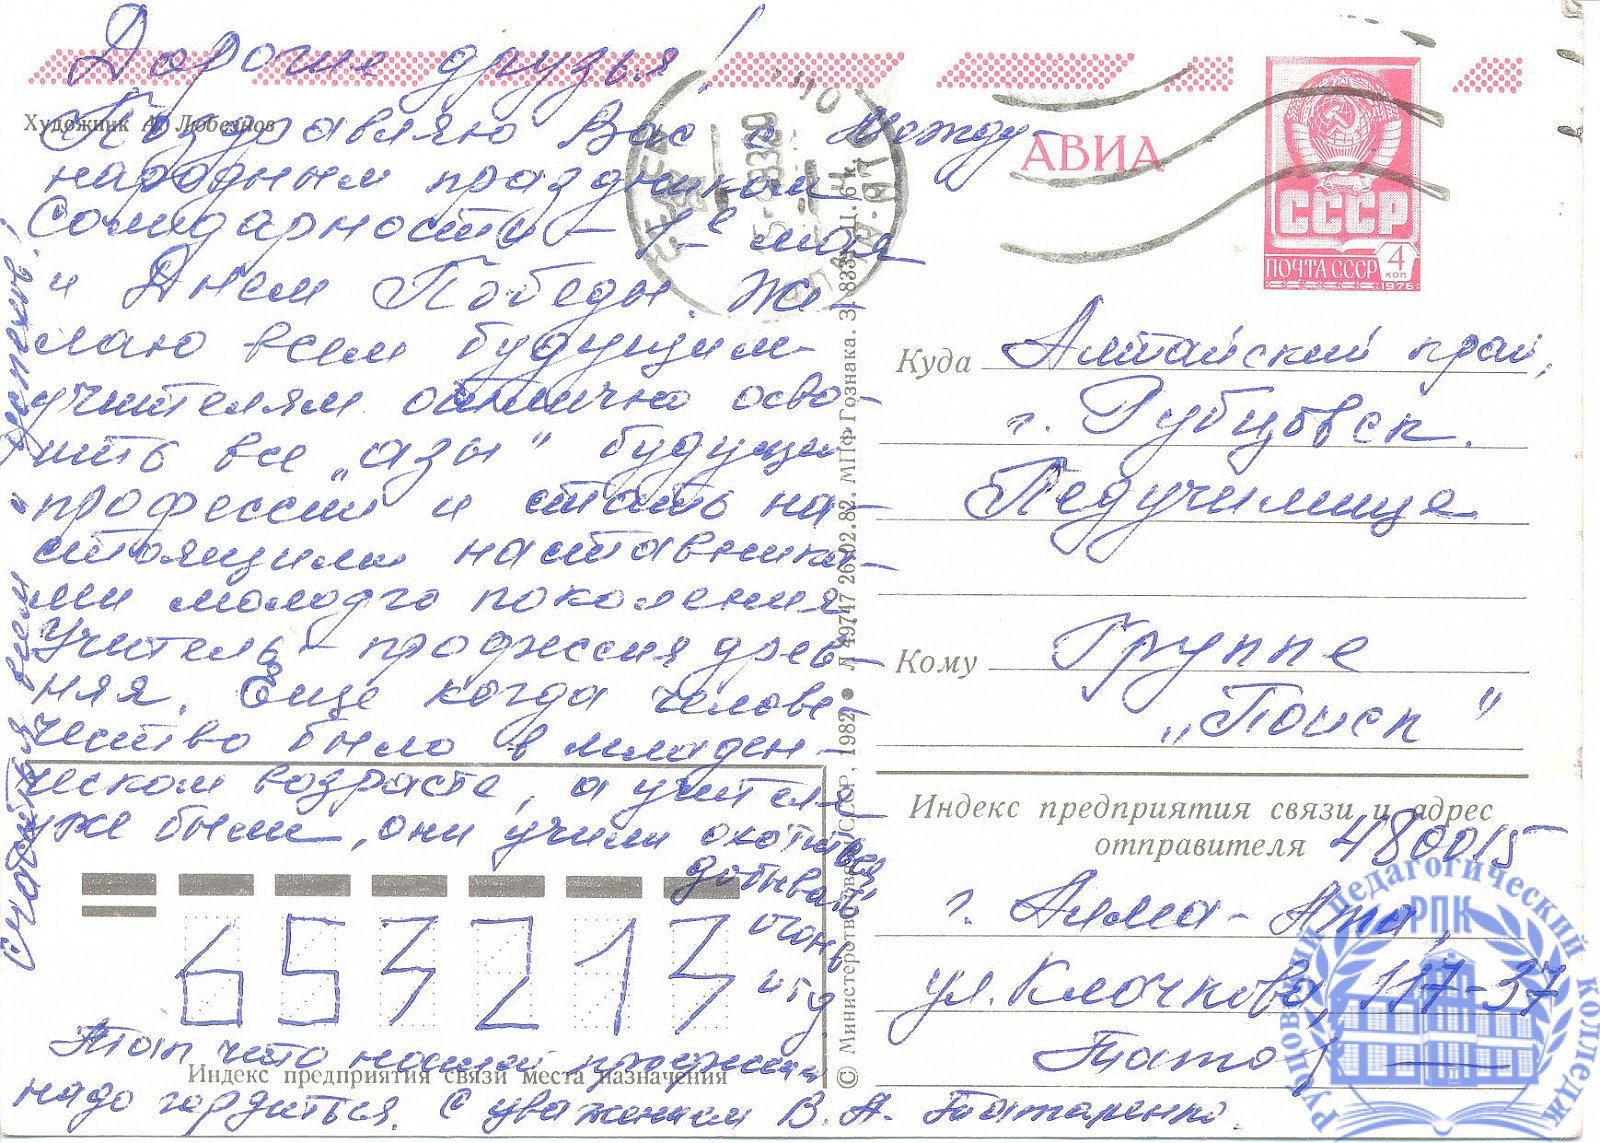 Дорогие друзья!
Художник А. Любезнов
Поздравляю Вас с Между-
народным праздником
солидарности – 1-е мая
и Днем Победы. Же-
лаю всем будущим
учителям отлично осво-
ить все „азы" будущей
профессии и стать на-
стоящими наставника-
ми молодого поколения
Учитель – профессия древ-
няя. Еще когда челове-
чество было в младен-
ческом возрасте, а учителя
уже были, они учили охотиться
добывать
огонь
и т д.
Так что нашей профессией
надо гордиться. С уважением В. А. Татаренко.
Счастья всем и успехов!
653213
Индекс предприятия связи места назначения
© Министерство связи СССР, 1982 • Л 49747 26.02.82. МПФ Гознака. З. 1833. Ц. 6 к.
АВИА
СССР
ПОЧТА СССР 4
КОП
1976
Куда Алтайский край,
г. Рубцовск.
Педучилище
Кому Группе
„Поиск"
Индекс предприятия связи и адрес
отправителя 480015
г. Алма-Ата,
ул. Клочкова, 117-37
РПК
педагогический колледж